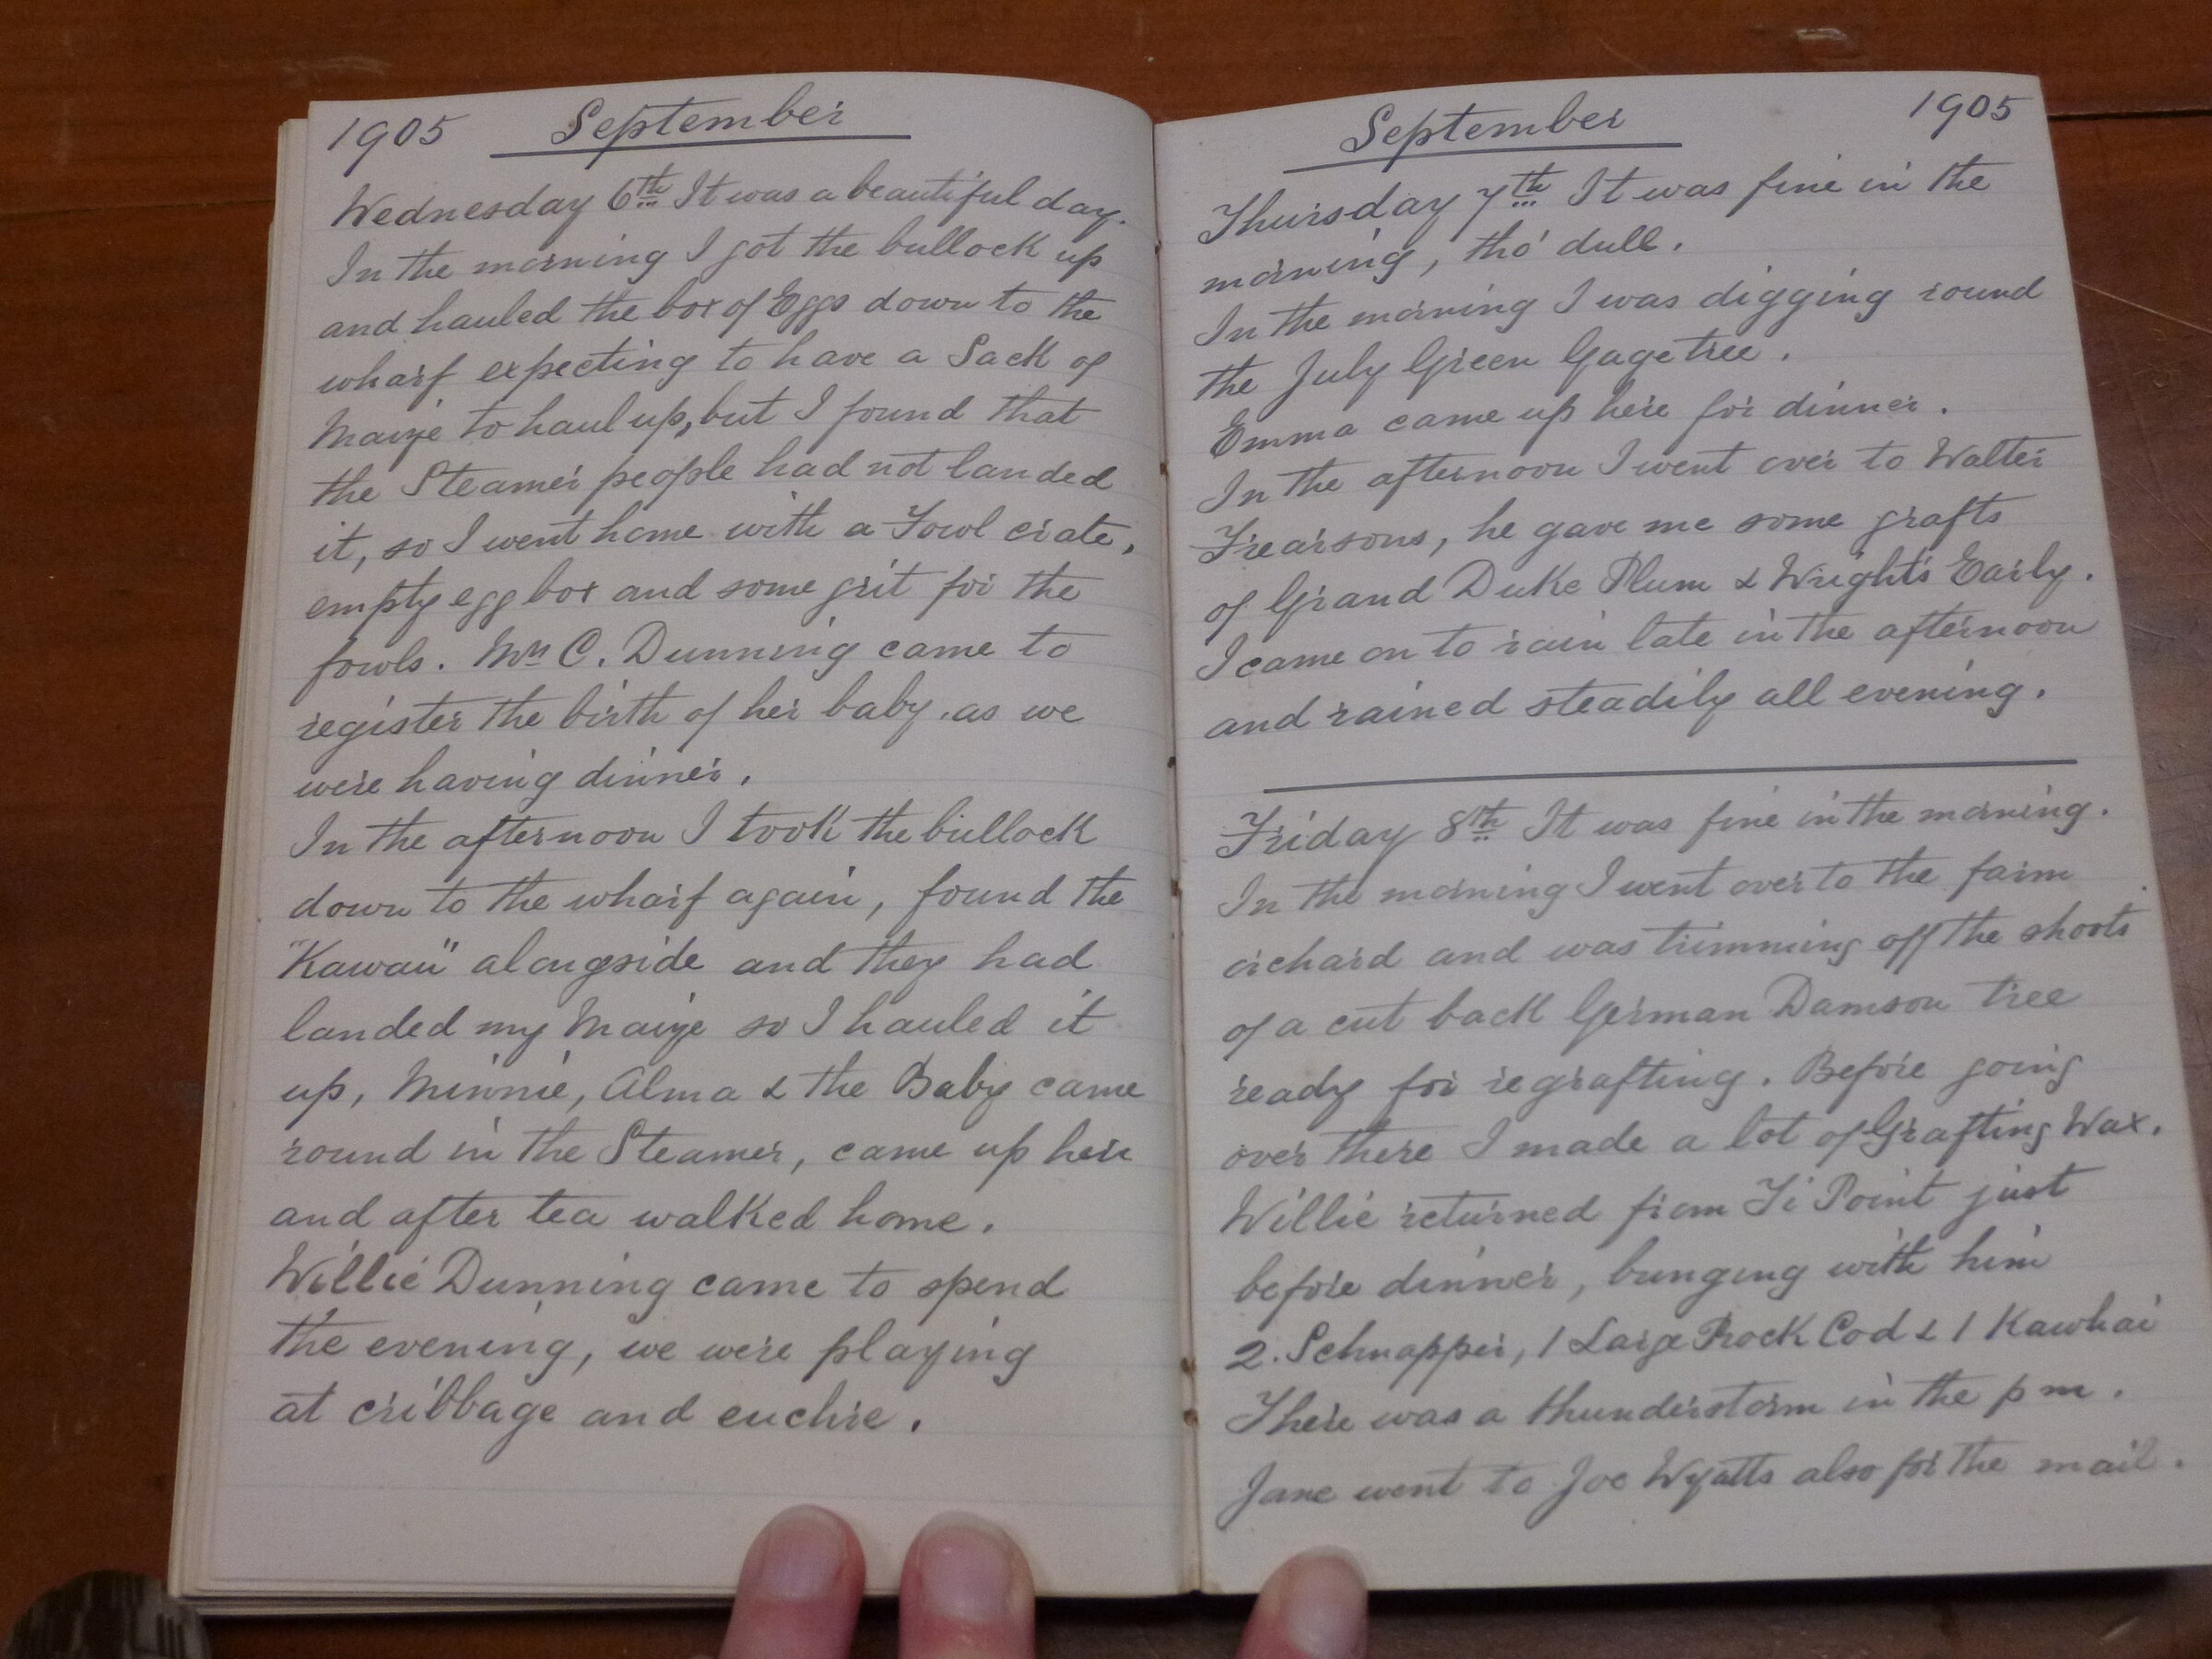 1905 September
Wednesday 6th It was a beautiful day.
In the morning I got the bullock up
and hauled the box of Eggs down to the
wharf expecting to have a Sack of
Maize to haul up, but I found that
the Steamer people had not landed
it, so I went home with a Fowl crate,
empty egg box and some grit for the
fowls. Mrs C. Dunning came to
register the birth of her baby. as we
were having dinner.
In the afternoon I took the bullock
down to the wharf again, found the
"Kawau" alongside and they had
landed my Maize so I hauled it
up, Minnie, Alma & the Baby came
round in the Steamer, came up here
and after tea walked home.
Willie Dunning came to spend
the evening, we were playing
at cribbage and euchre.
September 1905
Thursday 7th It was fine in the
morning, tho' dull.
In the morning I was digging round
the July Green Gage tree.
Emma came up here for dinner.
In the afternoon I went over to Walter
Frearsons, he gave me some grafts
of Grand Duke Plum & Wright's Early.
I came on to rain late in the afternoon
and rained steadily all evening.
Friday 8th It was fine in the morning.
In the morning I went over to the farm
orchard and was trimming off the shoots
of a cut back German Damson tree
ready for regrafting. Before going
over there I made a lot of Grafting Wax.
Willie returned from Ti Point just
before dinner, bringing with him
2. Schnapper, 1 Large Rock Cod & 1 Kawhai
There was a thunderstorm in the pm.
Jane went to Joe Wyatts also for the mail.